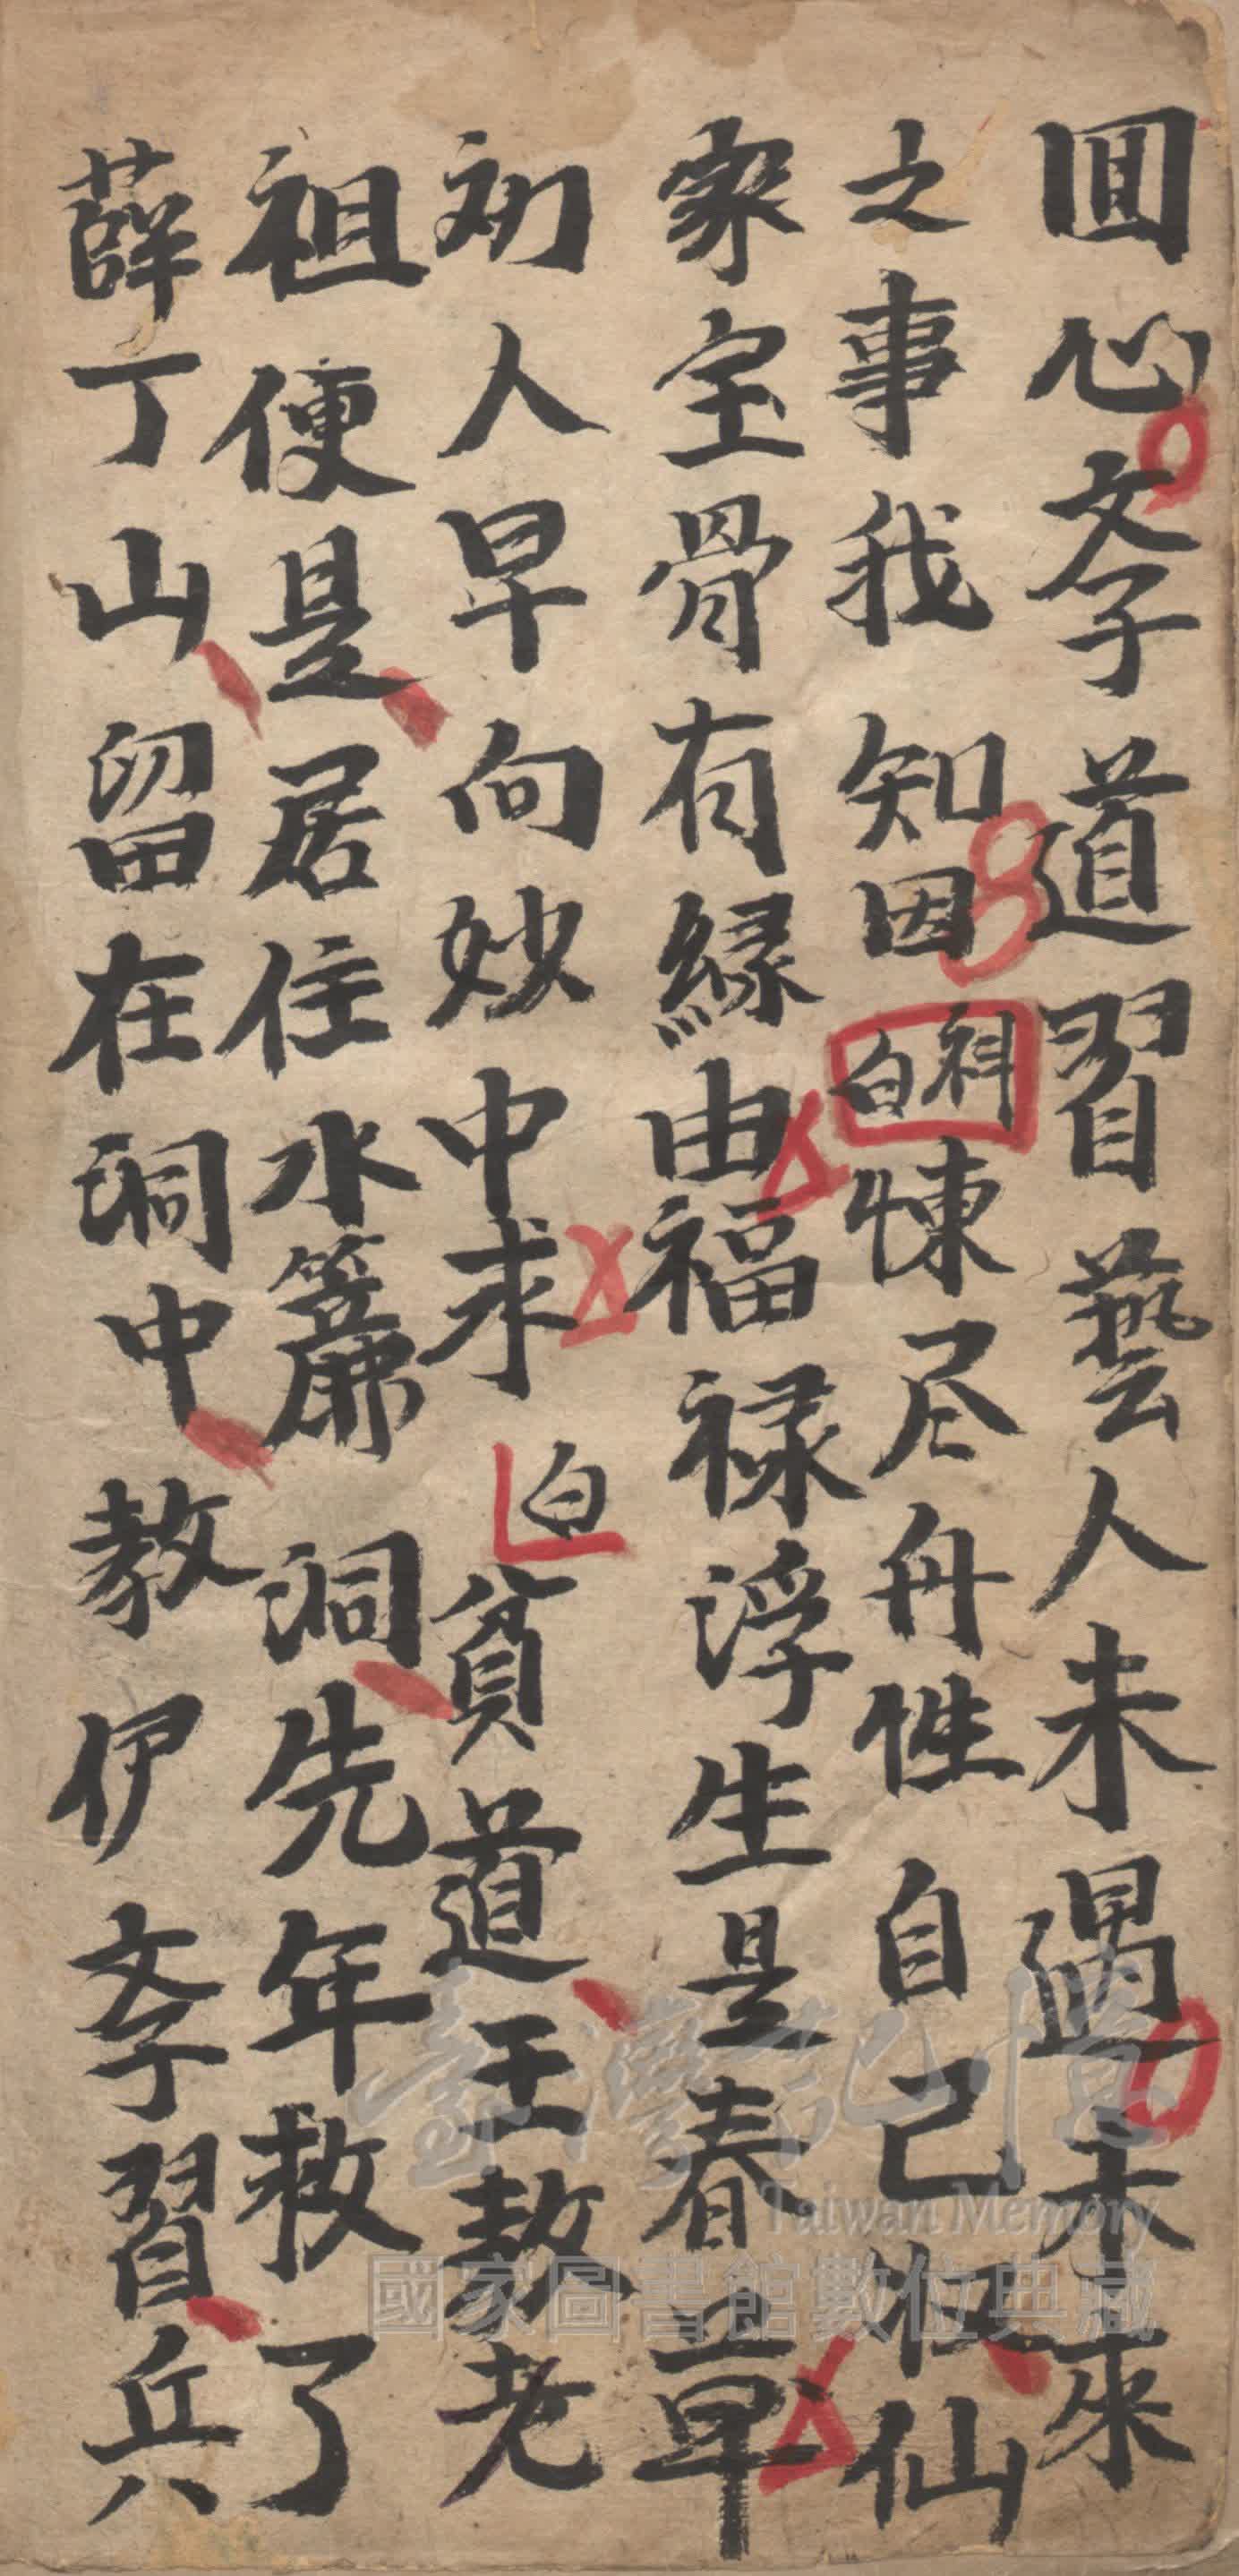 囬心斈道習藝人未遇未來
之事我知因科白悚尽舟性自己收仙
家宝骨有緣由福禄浮生是春草
劝人早向妙中求白貧道王敖老
祖便是居住水簾洞先年救了
薛丁山留在洞中教伊斈習兵
臺灣記憶
Taiwan Memory
國家圖書館數位典藏